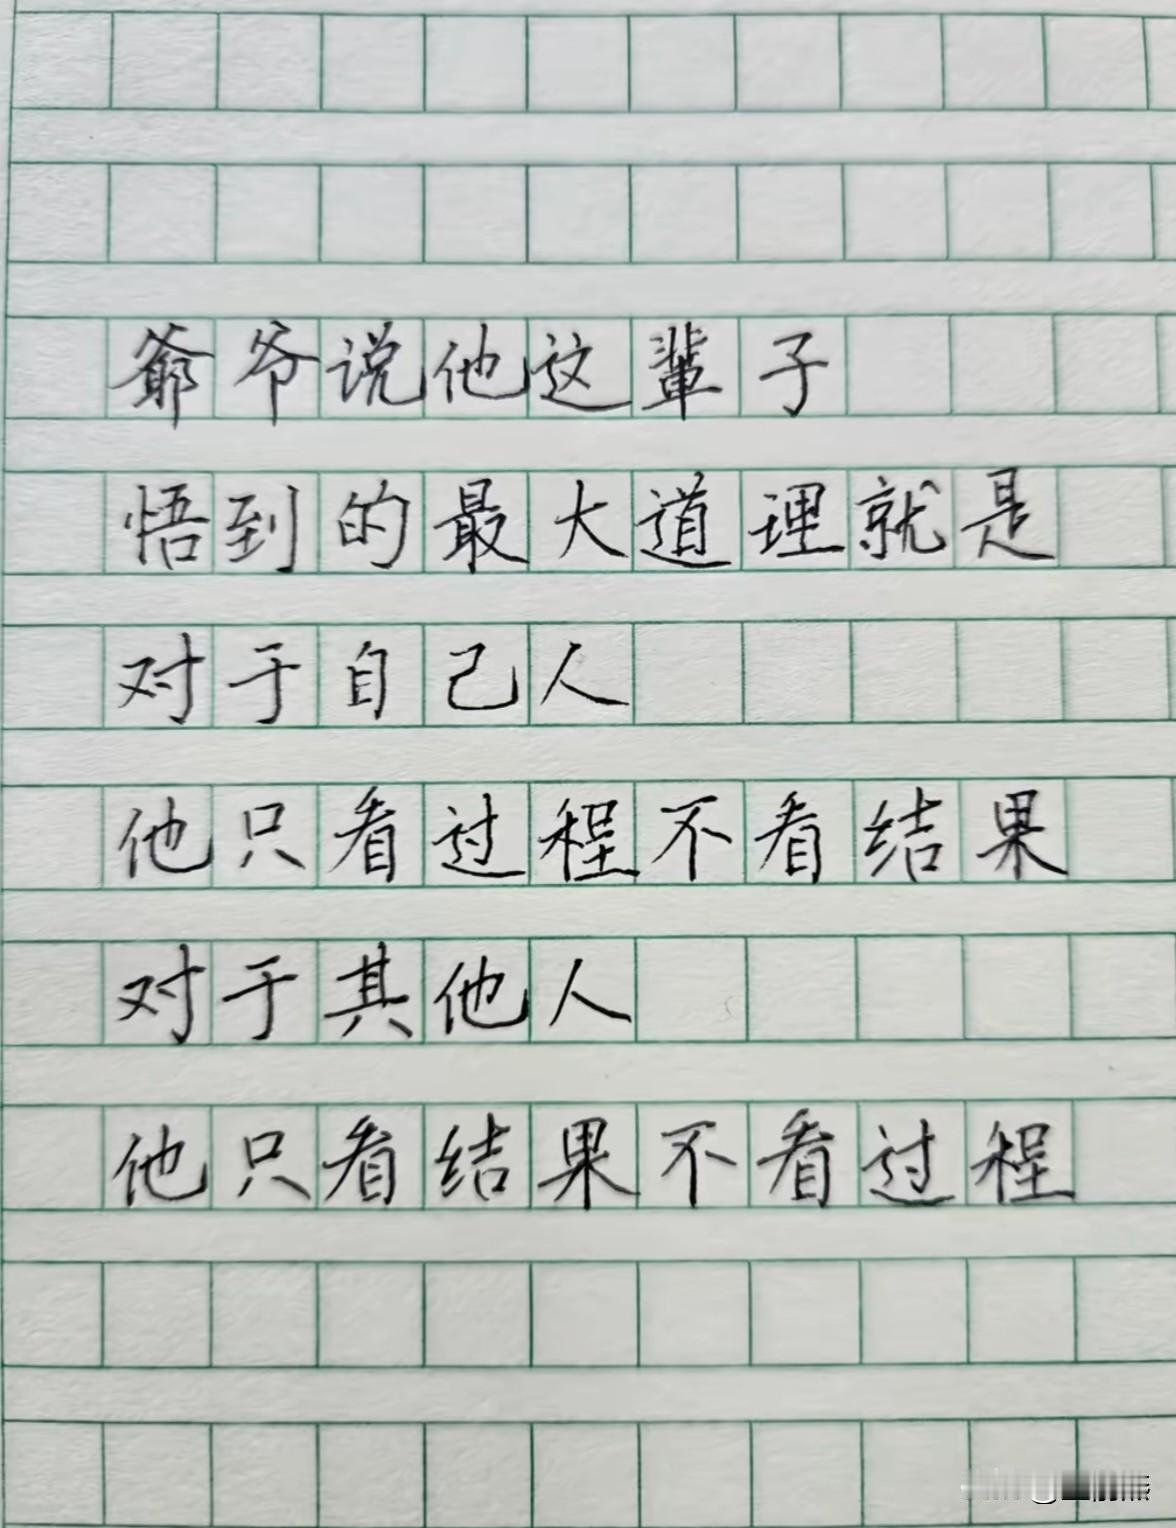 爺爷说他这輩子
悟到的最大道理就是
对于自己人
他只看过程不看结果
对于其他人
他只看结果不看过程